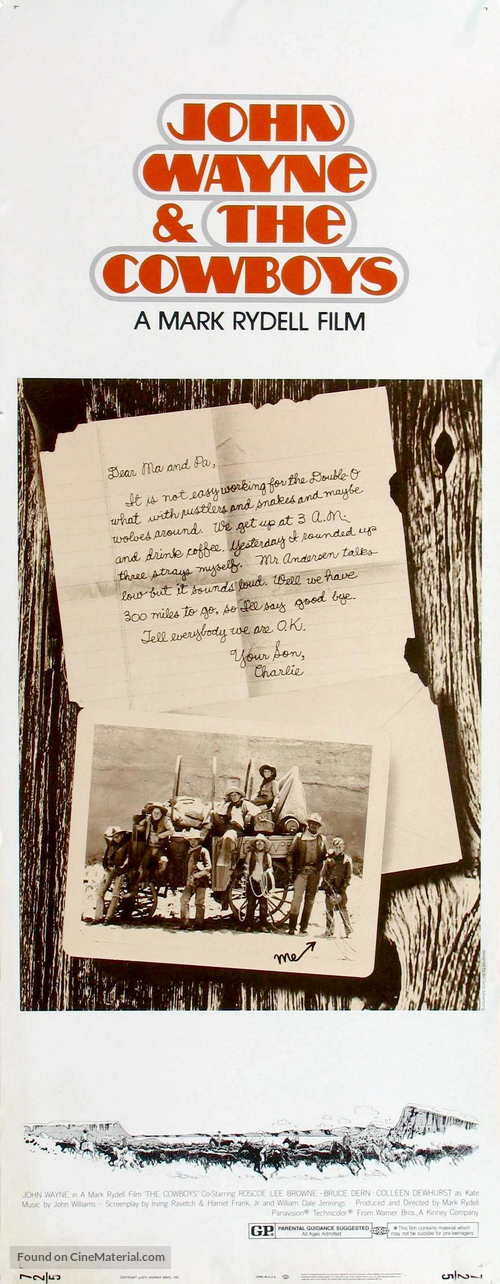 JOHN
WAYNE
& THE
COWBOYS
A MARK RYDELL FILM
Dear Ma and Pa,
It is not easy working for the Double-O
what with rustlers and snakes and maybe
wolves around. We get up at 3 A.M.
and drink coffee. Yesterday I rounded up
three strays myself. Mr. Andersen talks
low but it sounds loud. Well we have
300 miles to go, so I'll say good bye.
Tell everybody we are O.K.
Your Son,
Charlie
me
JOHN WAYNE in A Mark Rydell Film "THE COWBOYS" Co-Starring ROSCOE LEE BROWNE · BRUCE DERN · COLLEEN DEWHURST as Kate
Music by John Williams · Screenplay by Irving Ravetch & Harriet Frank, Jr. and William Dale Jennings · Produced and Directed by Mark Rydell
Panavision® Technicolor® From Warner Bros., A Kinney Company
GP PARENTAL GUIDANCE SUGGESTED
All Ages Admitted
This film contains material which
may not be suitable for pre-teenagers
72/5
72/5
Found on CineMaterial.com